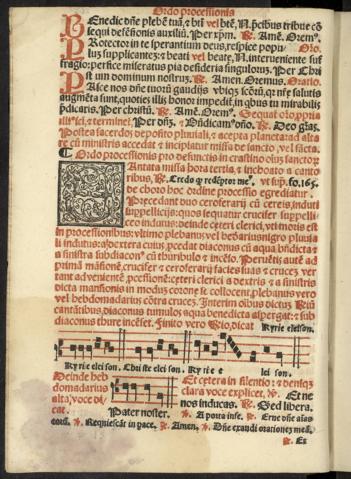 Ordo processionis
Benedic dñe plebē tuā, ⁊ bñī vel btē, N. p̄cibus tribue cō
sequi defēsionis auxiliū. Per xp̄m. ℟. Amē. Oremꝰ.
Protector in te sperantium deus, respice popu- Oro.
lum supplicantem: ⁊ beati vel beate, N. interueniente suf
fragio: perfice miseratus pia desideria singulorum. Per Chri
stum dominum nostrum. ℟. Amen. Oremus. Oratio.
Pasce nos dñe tuorū gaudijs vbiqꝫ scōrū, qꝛ nr̄e salutis
augmēta sunt, quoties illis honor impeditur, in qbus tu mirabilis
p̄dicaris. Per christū. ℟. Amē. Oremꝰ. Sequat oro, ppria
illiꝰ sc̄i, ⁊ terminet. Per dn̄ꝫ. ⁊ Bn̄dicamꝰ dn̄o. ℟. Deo grās.
Postea sacerdos deposito pluuiali, ⁊ accepta planeta: ad alta
re cū ministris accedat ⁊ incipiatur missa de sancto, vel facta.
Ordo processionis pro defunctis in crastino oīuꝫ sanctoꝝ
Cantata missa hora tertia, ⁊ inchoato a canto
ribus, ℟. Credo ꝙ redēptor meꝰ. vt sup̄. fo. 165.
de choro hoc ordine processio egrediatur.
Precedant duo ceroferarij cū cereis, induti
suppellicijs: quos sequatur crucifer suppelli-
ceo indutus: deinde ceteri clerici, vti moris est
in processionibus: vltimo plebanus vel hebdomadarius nigro pluuia
li indutus: a dextera cuiꝰ, p̄cedat diaconus cū aqua bn̄dicta ⁊
a sinistra subdiaconꝰ cū thuribulo ⁊ incēso. Perueniēs autē ad
primā māsionē, crucifer ⁊ ceroferarij facies suas ⁊ cruces ver
tant aduenientē, pcessionē: ceteri clerici a dextris ⁊ a sinistris
dicta mansionis in modum corone se collocent, plebanus vero
vel hebdomadarius cōtra cruces. Interim oībus dictuꝫ ℟iū
cantātibus, diaconus tumulos aqua benedicta aspergat: ⁊ sub
diaconus thure incēset. Finito vero ℟io, dicat Kyrie eleison.
Kyrie elei son. Chri ste elei son. Ky ri e e lei son.
Deinde heb
domadarius
alta, voce di-
cat.
Pater noster.
Et cetera in silentio: ⁊ deniqꝫ
clara voce explicet, ℣. Et ne
nos inducas. ℟. Sed libera.
℣. A porta infe. ℟. Erue dn̄e aīas
eorū. ℣. Requiescāt in pace. ℟. Amen. ℣. Dn̄e exaudi orationeꝫ meā.
℟. Et